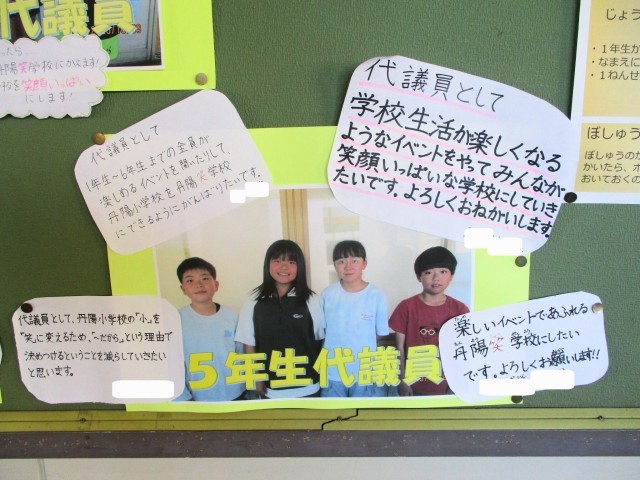 代議員
丹陽笑学校にかえます!
笑顔いっぱい
にします!
代議員として
1年生~6年生までの全員が
楽しめるイベントを開いたりして、
丹陽小学校を丹陽笑学校
にできるようにがんばりたいです。
代議員として
学校生活が楽しくなる
ようなイベントをやってみんなが
笑顔いっぱいな学校にしていき
たいです。よろしくおねがいします
じょう
・1年生か
・なまえに
・1ねんせ
ぼしゅう
ぼしゅうの
かいたら、ポ
おいておくの
代議員として、丹陽小学校の「小」を
「笑」に変えるため、「~だから。」という理由で
決めつけるということを減らしていきたい
と思います。
5年生代議員
楽しいイベントであふれる
丹陽笑学校にしたい
です。よろしくお願いします!!